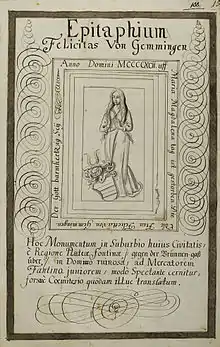 Epitaphium
Felicitas Von Gemmingen
Anno Domini MCCCCXCII uff
Maria Magdalena tag ist gestorben die
Edle Frau Felicitas Von Gemmingen
Der Gott barmhertzig Sey
Hoc Monumentum in Suburbio huius Civitatis,
è Regione Plateæ, fontinæ, gegen der Brünnen gaß
in Domo ruinosa, ad Mercatorem
Fantina juniorem, modò Spectante cernitur,
forsan Cœmiterio quodam illuc translatum.